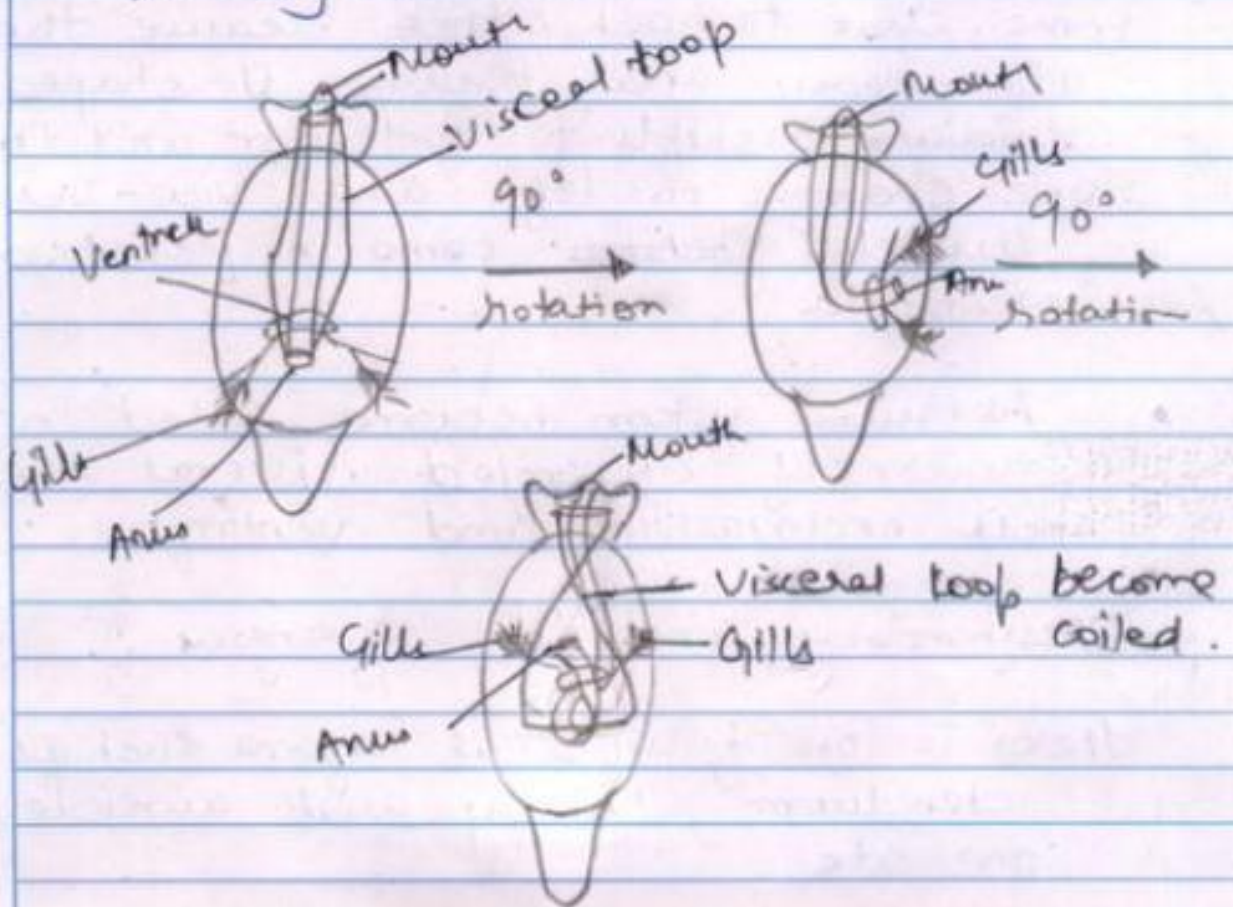 Mouth
Visceal loop
Ventrcle
90°
rotation
Gills
Anus
Mouth
Gills
90°
Anu
rotation
Mouth
Visceral loop become
coiled.
Gills
Gills
Anus